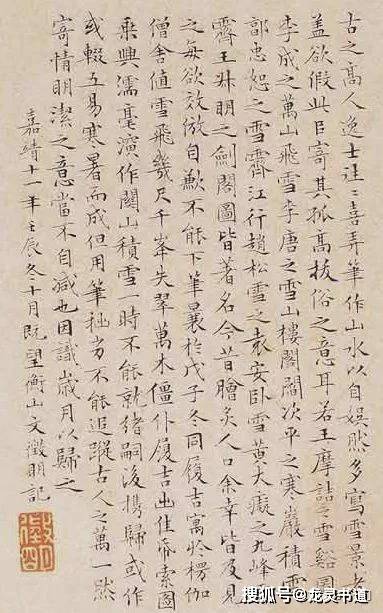 古之高人逸士往〻喜弄筆作山水以自娛然多寫雪景者
蓋欲假此以寄其孤高拔俗之意耳若王摩詰之雪谿圖
李成之萬山飛雪李唐之雪山樓閣閻次平之寒巖積雪
郭忠恕之雪霽江行趙松雪之袁安臥雪黃大癡之九峰
霽王叔明之劍閣圖皆著名今昔膾炙人口余幸皆及見
之每欲效倣自歉不能下筆曩於戊子冬同履吉寓於楞伽
僧舍值雪飛幾尺千峯失翠萬木僵仆履吉出佳紙索圖
乘興濡毫演作關山積雪一時不能就緒嗣後攜歸或作
或輟五易寒暑而成但用筆拙劣不能追蹤古人之萬一然
寄情明潔之意當不自減也因識歲月以歸之
嘉靖十一年壬辰冬十月既望衡山文徵明記
搜狐号@龙灵书道